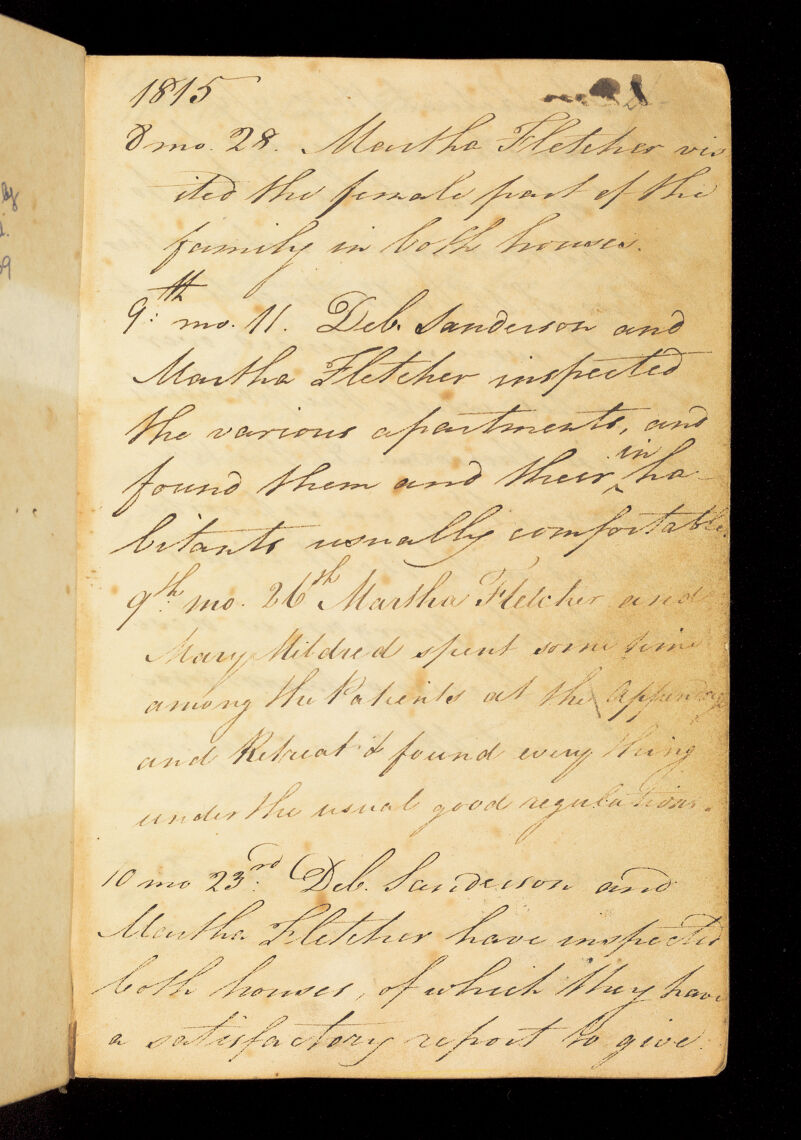 1815
8 mo. 28. Martha Fletcher vis
ited the female part of the
family in both houses.
9th. mo. 11. Deb. Sanderson and
Martha Fletcher inspected
the various apartments, and
found them and their in ha-
bitants usually comfortable.
9th. mo. 26th Martha Fletcher and
Mary Mildred spent some time
among the Patients at the Appendage
and Retreat & found every thing
under the usual good regulations.
10 mo 23rd. Deb. Sanderson and
Martha Fletcher have inspected
both houses, of which they have
a satisfactory report to give.